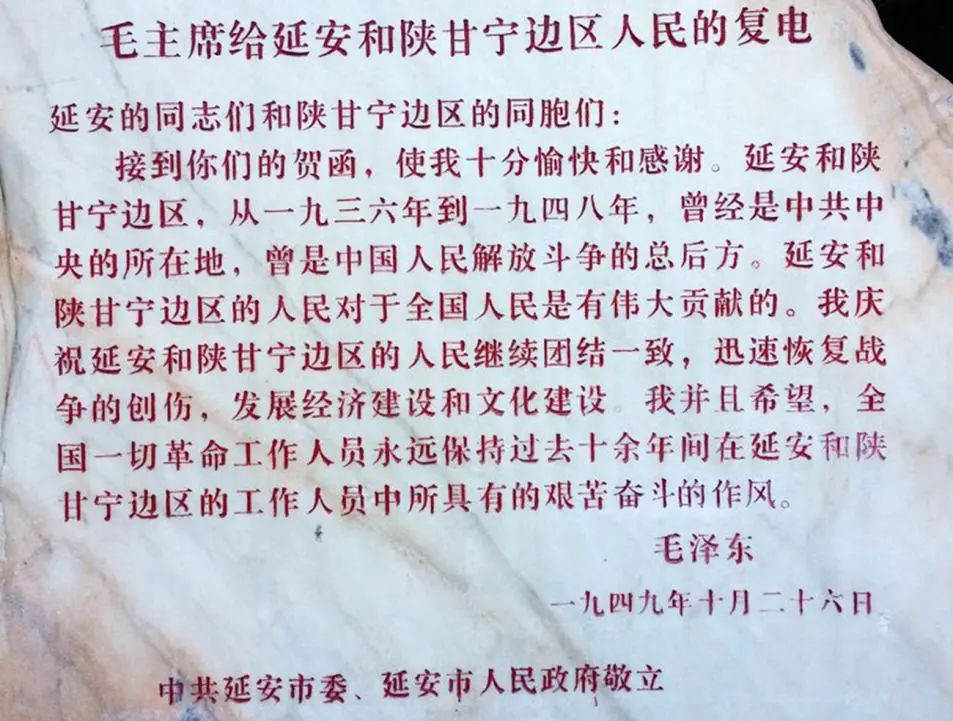 毛主席给延安和陕甘宁边区人民的复电
延安的同志们和陕甘宁边区的同胞们：
接到你们的贺函，使我十分愉快和感谢。延安和陕
甘宁边区，从一九三六年到一九四八年，曾经是中共中
央的所在地，曾是中国人民解放斗争的总后方。延安和
陕甘宁边区的人民对于全国人民是有伟大贡献的。我庆
祝延安和陕甘宁边区的人民继续团结一致，迅速恢复战
争的创伤，发展经济建设和文化建设。我并且希望，全
国一切革命工作人员永远保持过去十余年间在延安和陕
甘宁边区的工作人员中所具有的艰苦奋斗的作风。
毛泽东
一九四九年十月二十六日
中共延安市委、延安市人民政府敬立